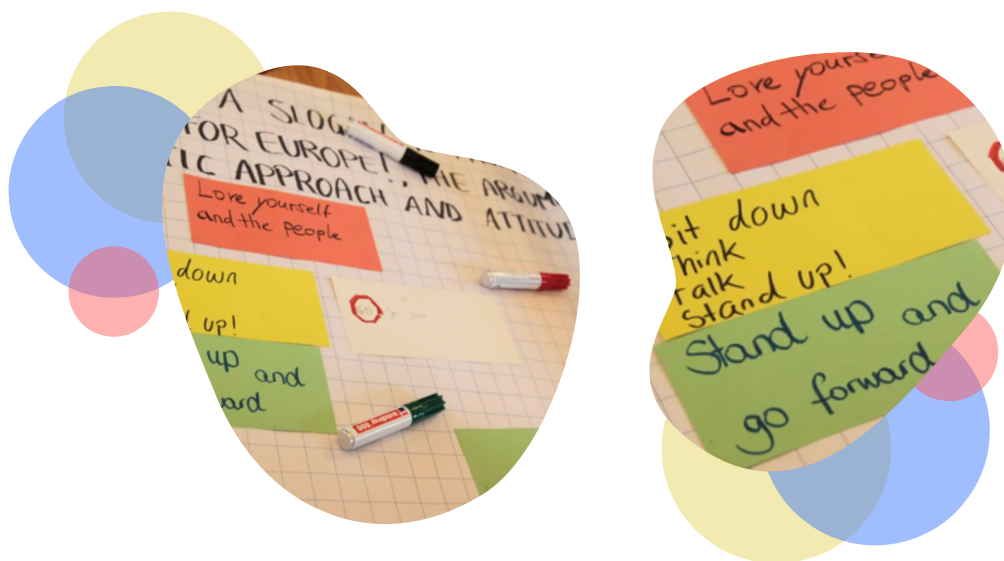 A SLOG
FOR EUROPE!, THE ARGUM
TIC APPROACH, AND ATTITUD
Love yourself
and the people
down
up!
up and
ward
edding 500
Love yourse
and the people
sit down
Think
Talk
Stand up!
Stand up and
go forward